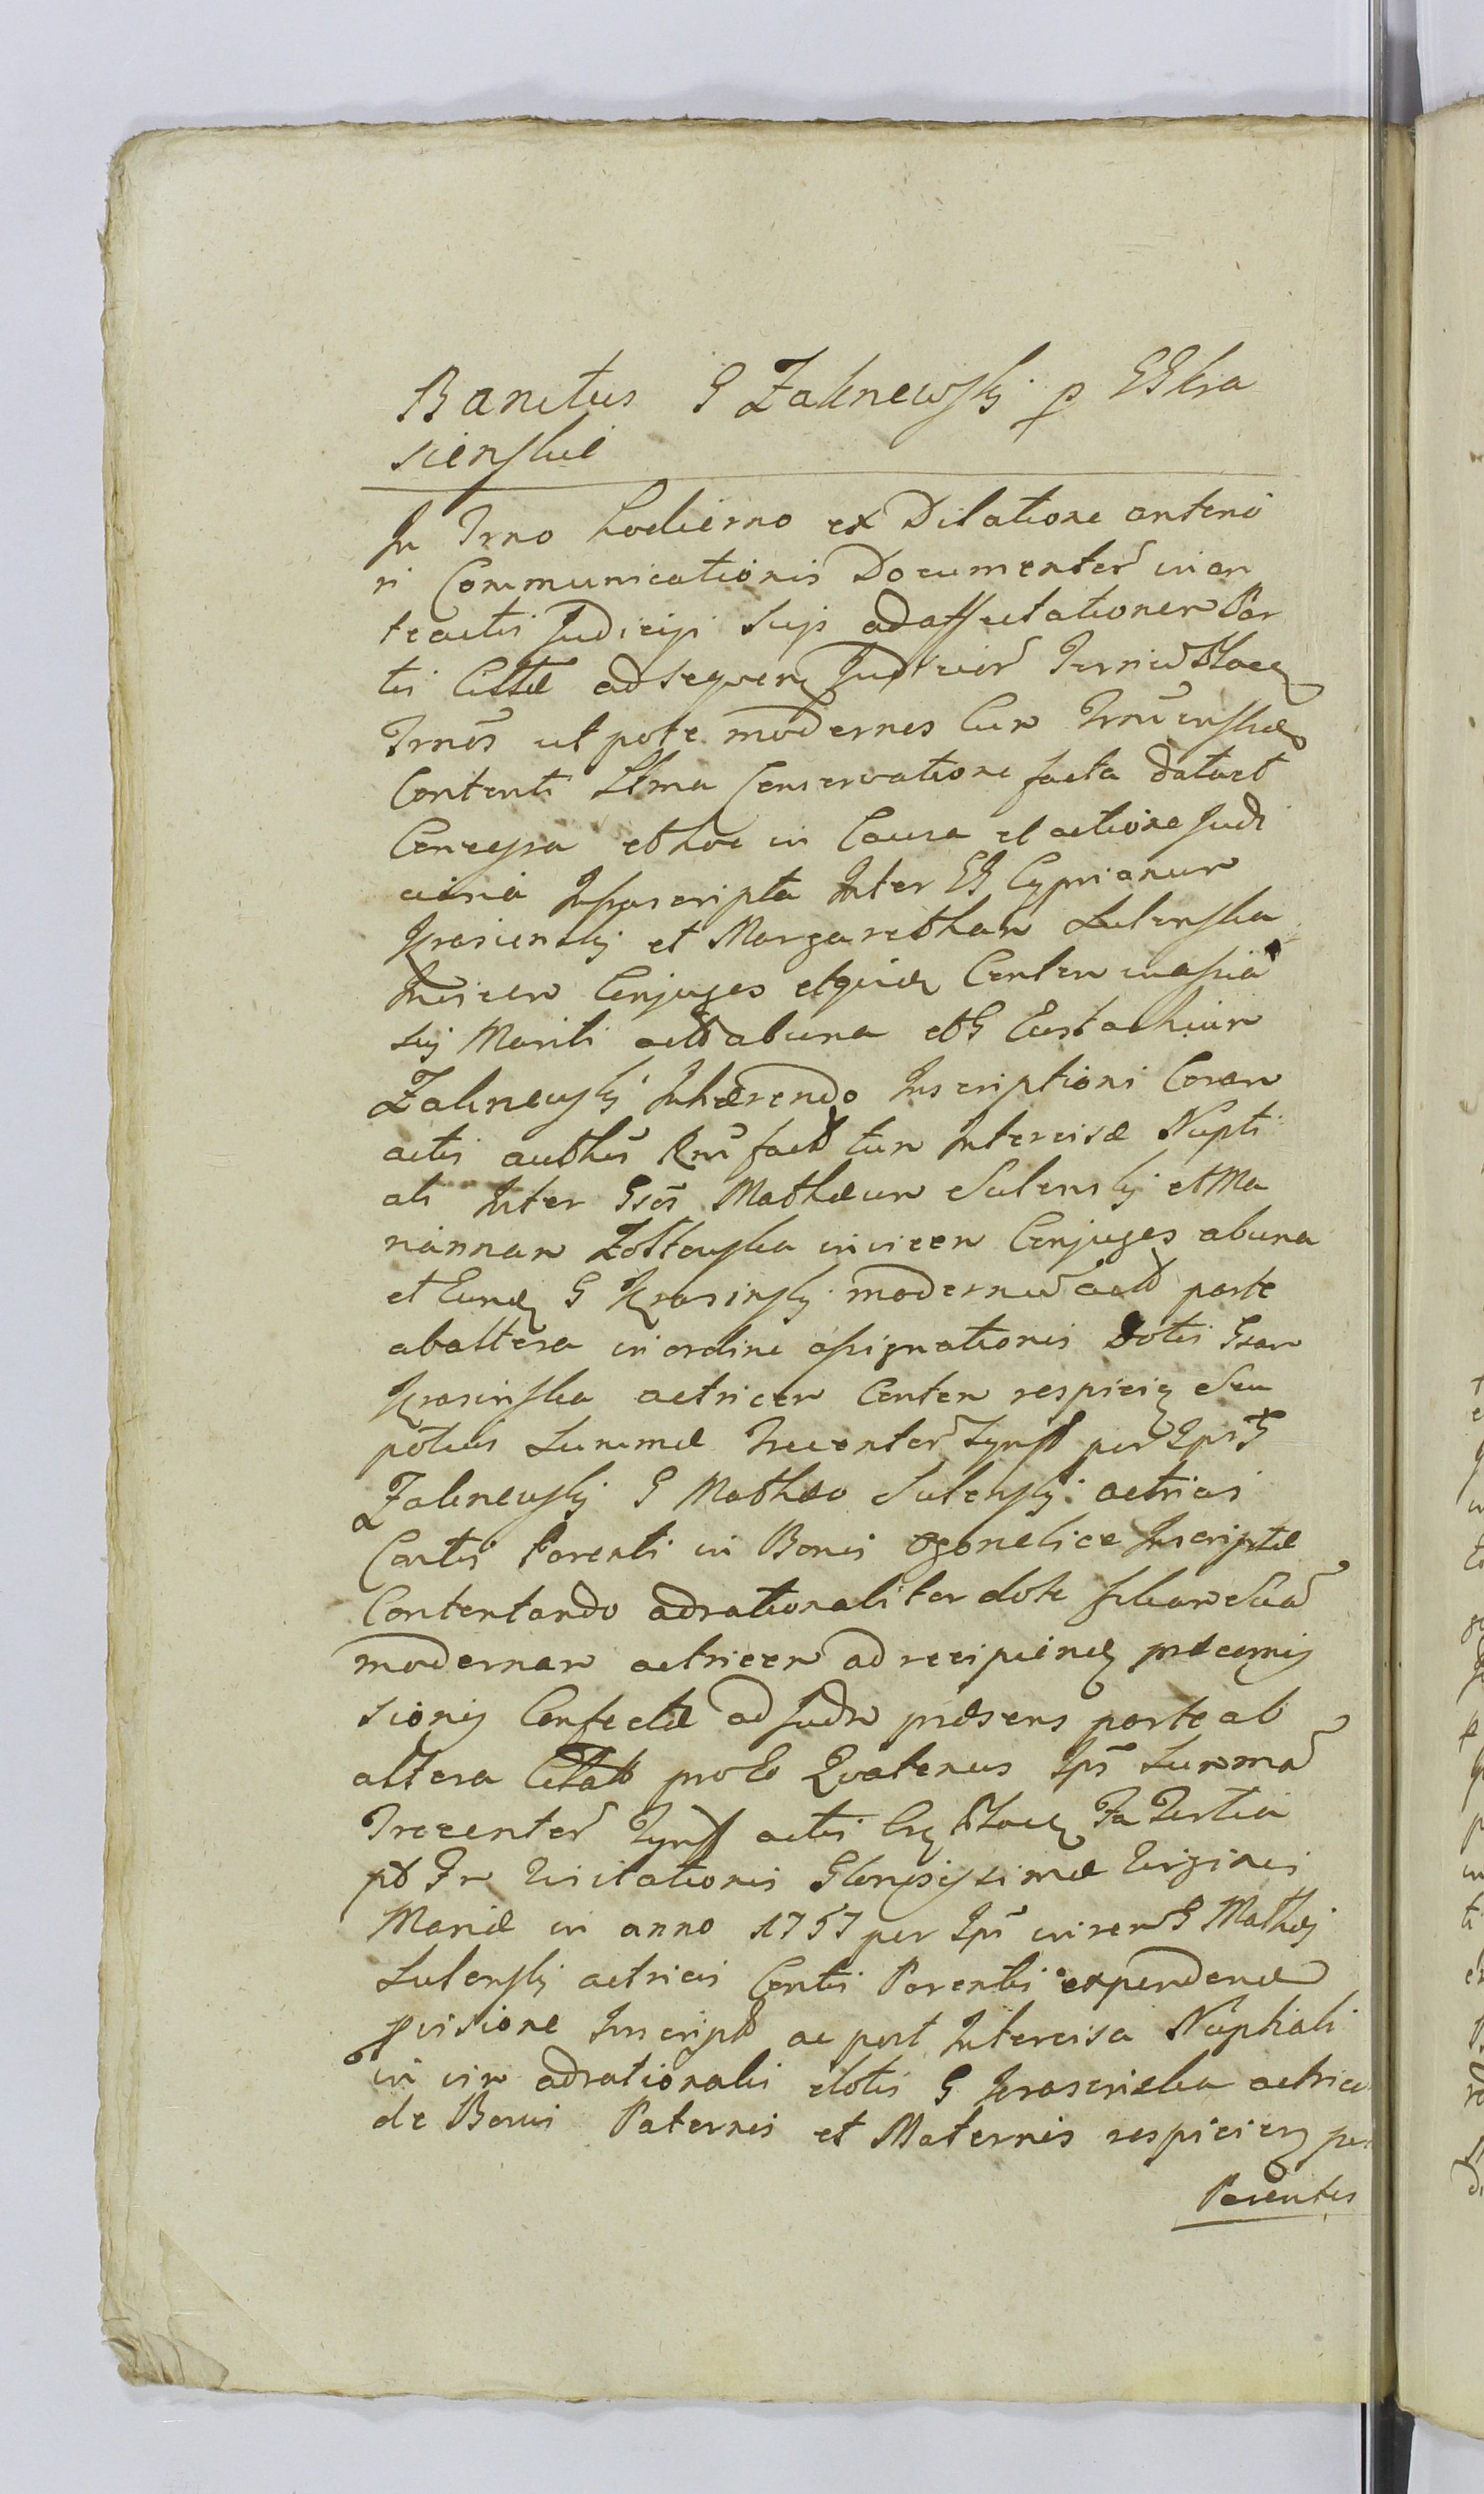 Banitus G Zalinewskj p GGkra
sienskie
In Trno hodierno ex Dilatione anterio
ri Communicationis Documentor in an
teactis Judicijs Suis ad affectationem Par
tis Cittæ ad sequen Judicior
Trnos ut pote modernos Cum
Contenti Conservatione facta dato et
Concessa et hoc in Causa et actione Judi
ciaria Infrascripta Inter GG Cyprianum
Krasienskj et Margaretham Sulenska
Invicem Conjuges et quidem
sui Mariti act ab una et G Eustachium
Zalinewskj Inhærendo Inscriptioni Coram
actis auth fact tum Intercisæ Nupti
ali Inter Gsos Mathæum Sulenskj et Ma
riannam Zoltowska invicem Conjuges ab una
et Eund G Krasinskj modernum act parte
ab altera in ordine assignationis Dotis Gsam
Krasinska actricem Conten respicien Seu
potius Summæ Trecentor Tynff per Ipsum G
Zalinewskj G Mathæo Sulenskj actricis
Contis Parenti in Bonis Ogonelice Inscriptæ
Contentando ad rationaliter dote filiam Suam
modernam actricem ad recipiend
sionis Confectæ ad Judm præsens parte ab
altera Citat pro Eo Quatenus Ips Summam
Trecentor Tynff actis Fa Tertia
pt Fm Visitationis Gloriosissimæ Virginis
Mariæ in anno 1757 per Ips in rem G Mathej
Sulenskj actricis Contis Parentis expendendæ
provisione Inscript ac post Intercisa Nuptiali
in vim ad rationalis dotis G Krasenska actrice
de Bonis Paternis et Maternis respicien per
Parentes